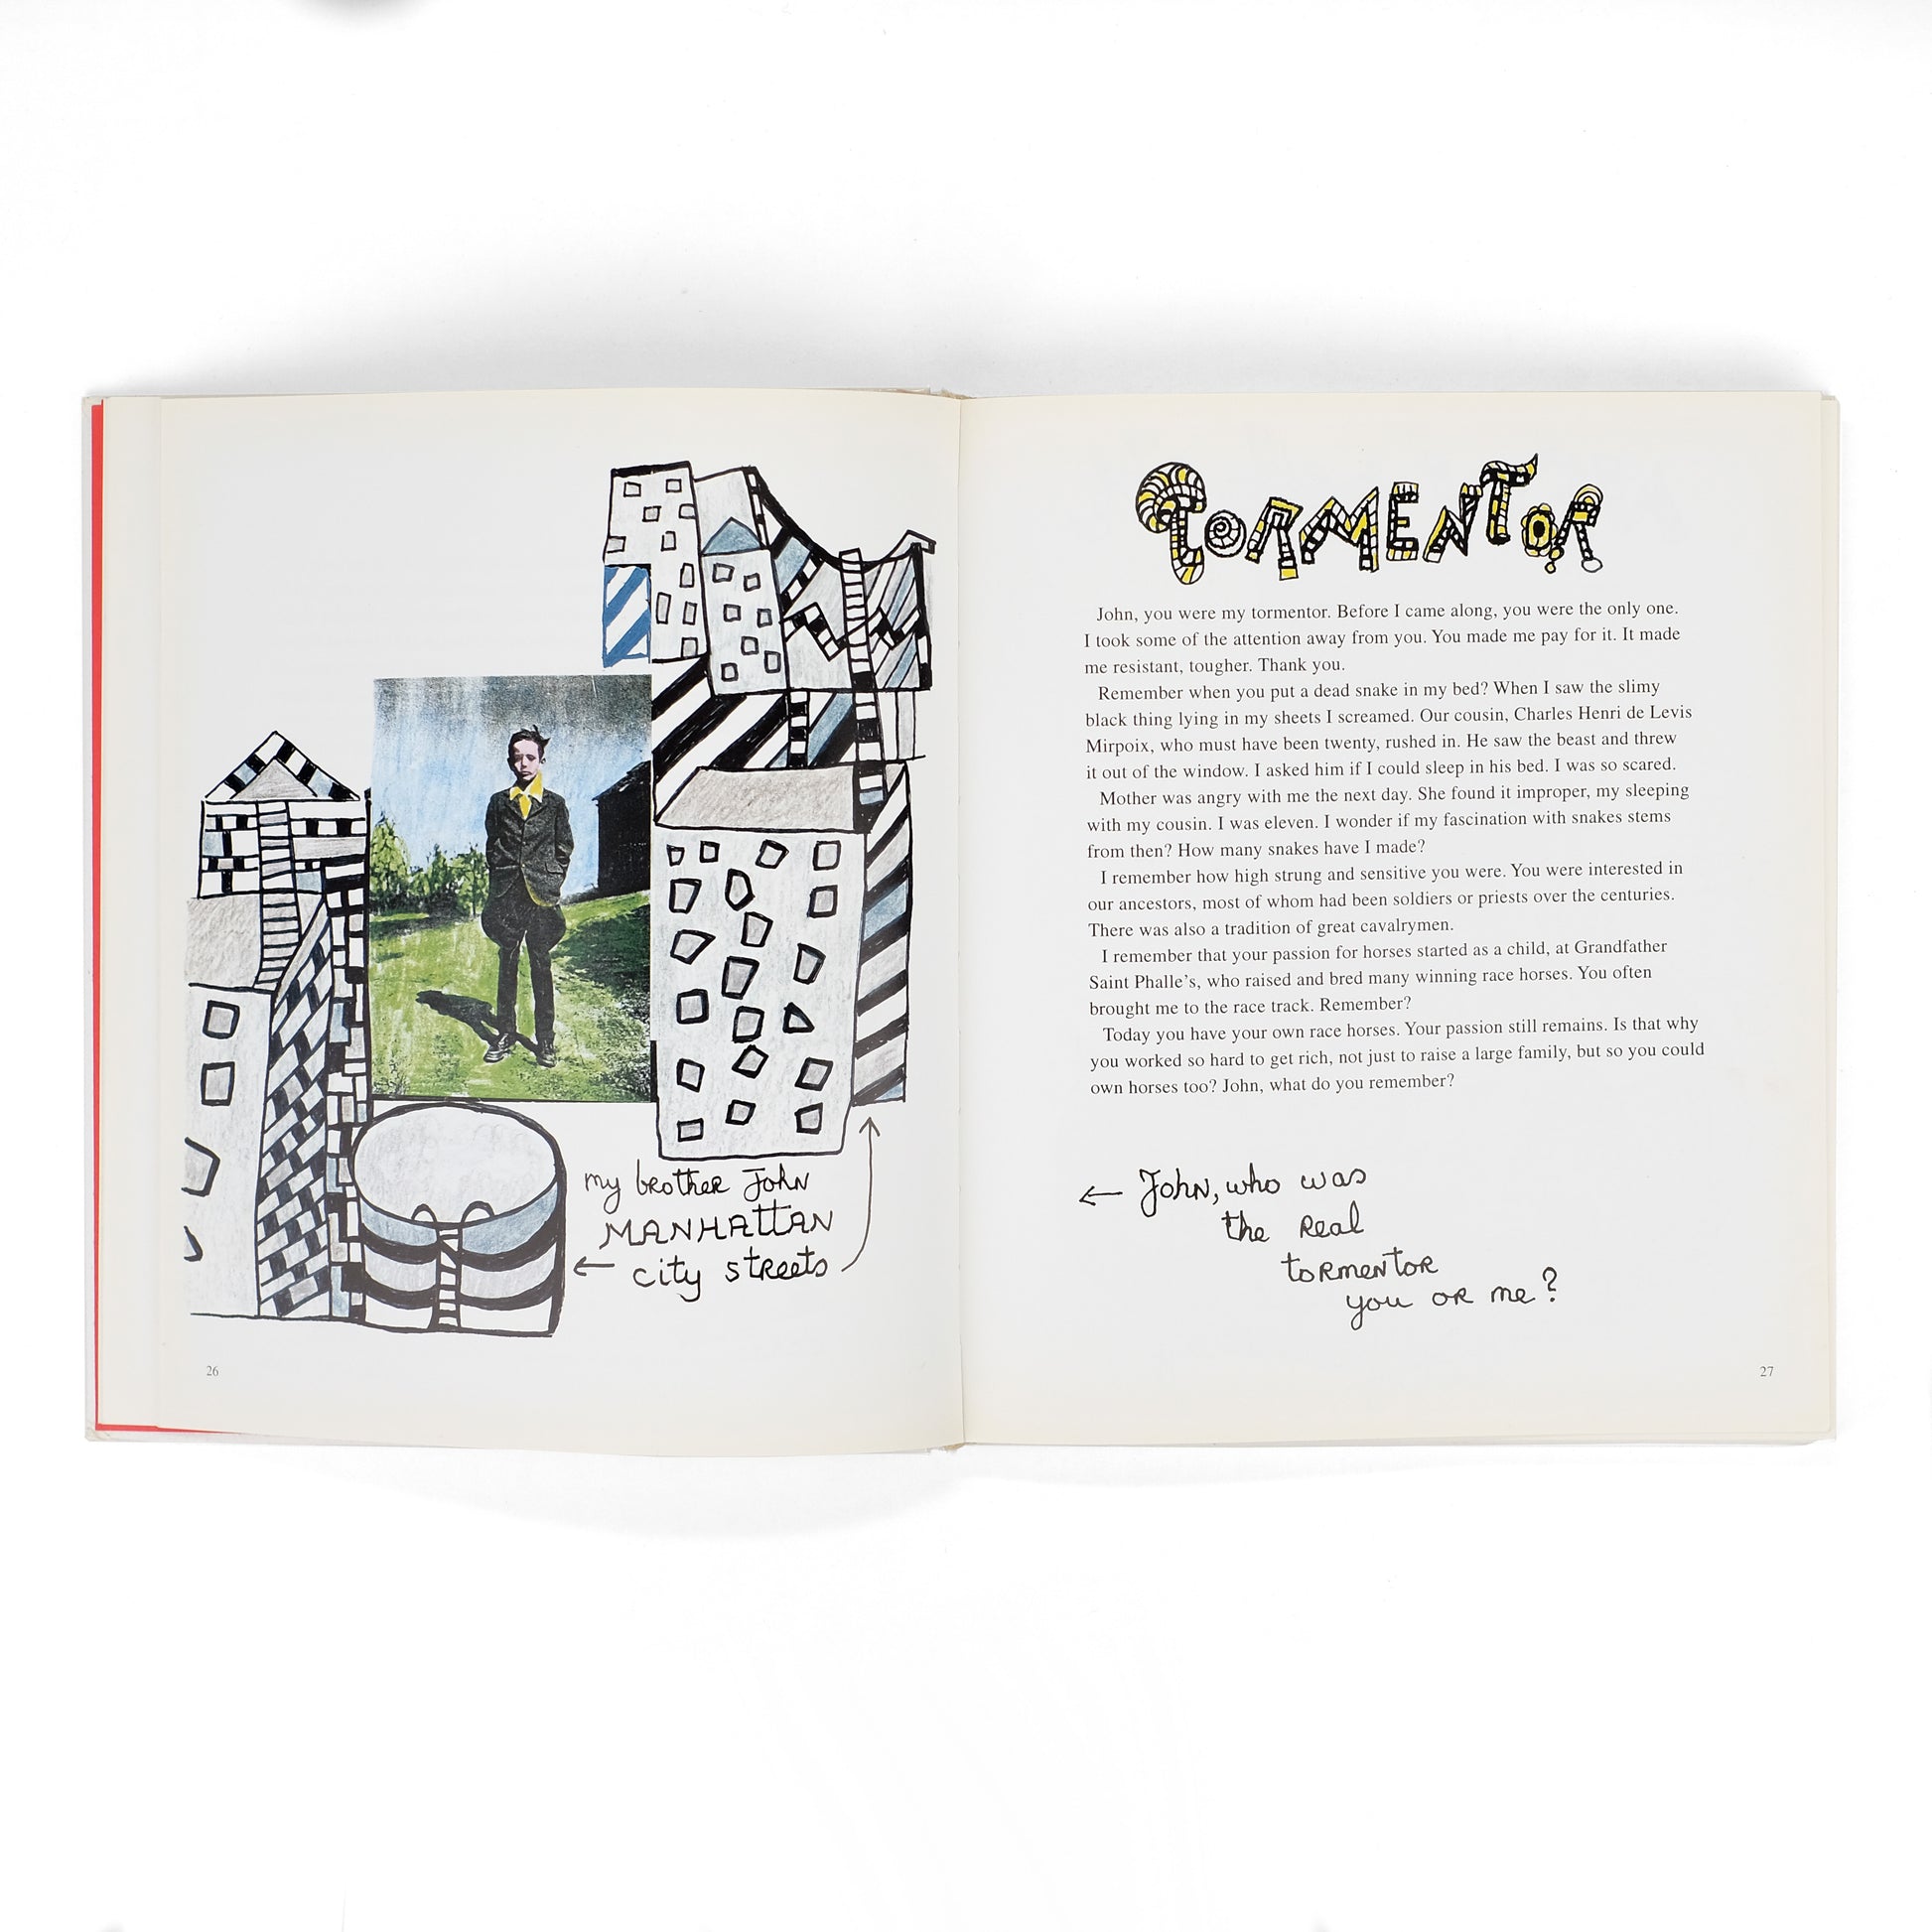 my brother John
MANHATTAN
city streets
26
TORMENTOR
John, you were my tormentor. Before I came along, you were the only one.
I took some of the attention away from you. You made me pay for it. It made
me resistant, tougher. Thank you.
Remember when you put a dead snake in my bed? When I saw the slimy
black thing lying in my sheets I screamed. Our cousin, Charles Henri de Levis
Mirpoix, who must have been twenty, rushed in. He saw the beast and threw
it out of the window. I asked him if I could sleep in his bed. I was so scared.
Mother was angry with me the next day. She found it improper, my sleeping
with my cousin. I was eleven. I wonder if my fascination with snakes stems
from then? How many snakes have I made?
I remember how high strung and sensitive you were. You were interested in
our ancestors, most of whom had been soldiers or priests over the centuries.
There was also a tradition of great cavalrymen.
I remember that your passion for horses started as a child, at Grandfather
Saint Phalle's, who raised and bred many winning race horses. You often
brought me to the race track. Remember?
Today you have your own race horses. Your passion still remains. Is that why
you worked so hard to get rich, not just to raise a large family, but so you could
own horses too? John, what do you remember?
← John, who was
the real
tormentor
you or me?
27